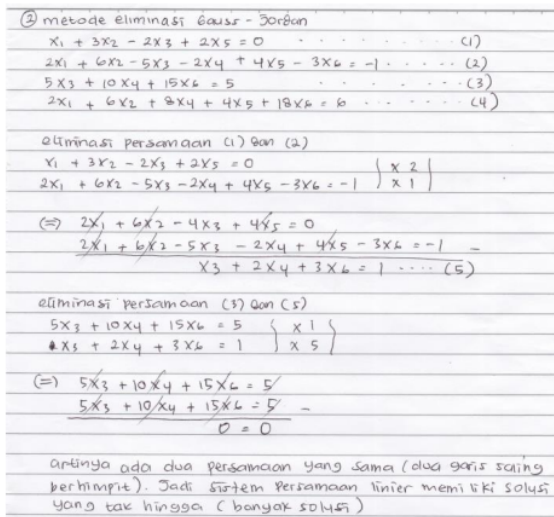 ② metode eliminasi Gauss - Jordan
x1 + 3x2 - 2x3 + 2x5 = 0 . . . . . . . . (1)
2x1 + 6x2 - 5x3 - 2x4 + 4x5 - 3x6 = -1 . . . . . (2)
5x3 + 10x4 + 15x6 = 5 . . . . . (3)
2x1 + 6x2 + 8x4 + 4x5 + 18x6 = 6 . . . . . . (4)
eliminasi persamaan (1) dan (2)
x1 + 3x2 - 2x3 + 2x5 = 0 | x 2 |
2x1 + 6x2 - 5x3 - 2x4 + 4x5 - 3x6 = -1 | x 1 |
(=) 2x1 + 6x2 - 4x3 + 4x5 = 0
2x1 + 6x2 - 5x3 - 2x4 + 4x5 - 3x6 = -1 -
x3 + 2x4 + 3x6 = 1 .... (5)
eliminasi persamaan (3) dan (5)
5x3 + 10x4 + 15x6 = 5 | x 1 |
x3 + 2x4 + 3x6 = 1 | x 5 |
(=) 5x3 + 10x4 + 15x6 = 5
5x3 + 10x4 + 15x6 = 5 -
0 = 0
artinya ada dua persamaan yang sama (dua garis saling
berhimpit). Jadi sistem persamaan linier memiliki solusi
yang tak hingga (banyak solusi)